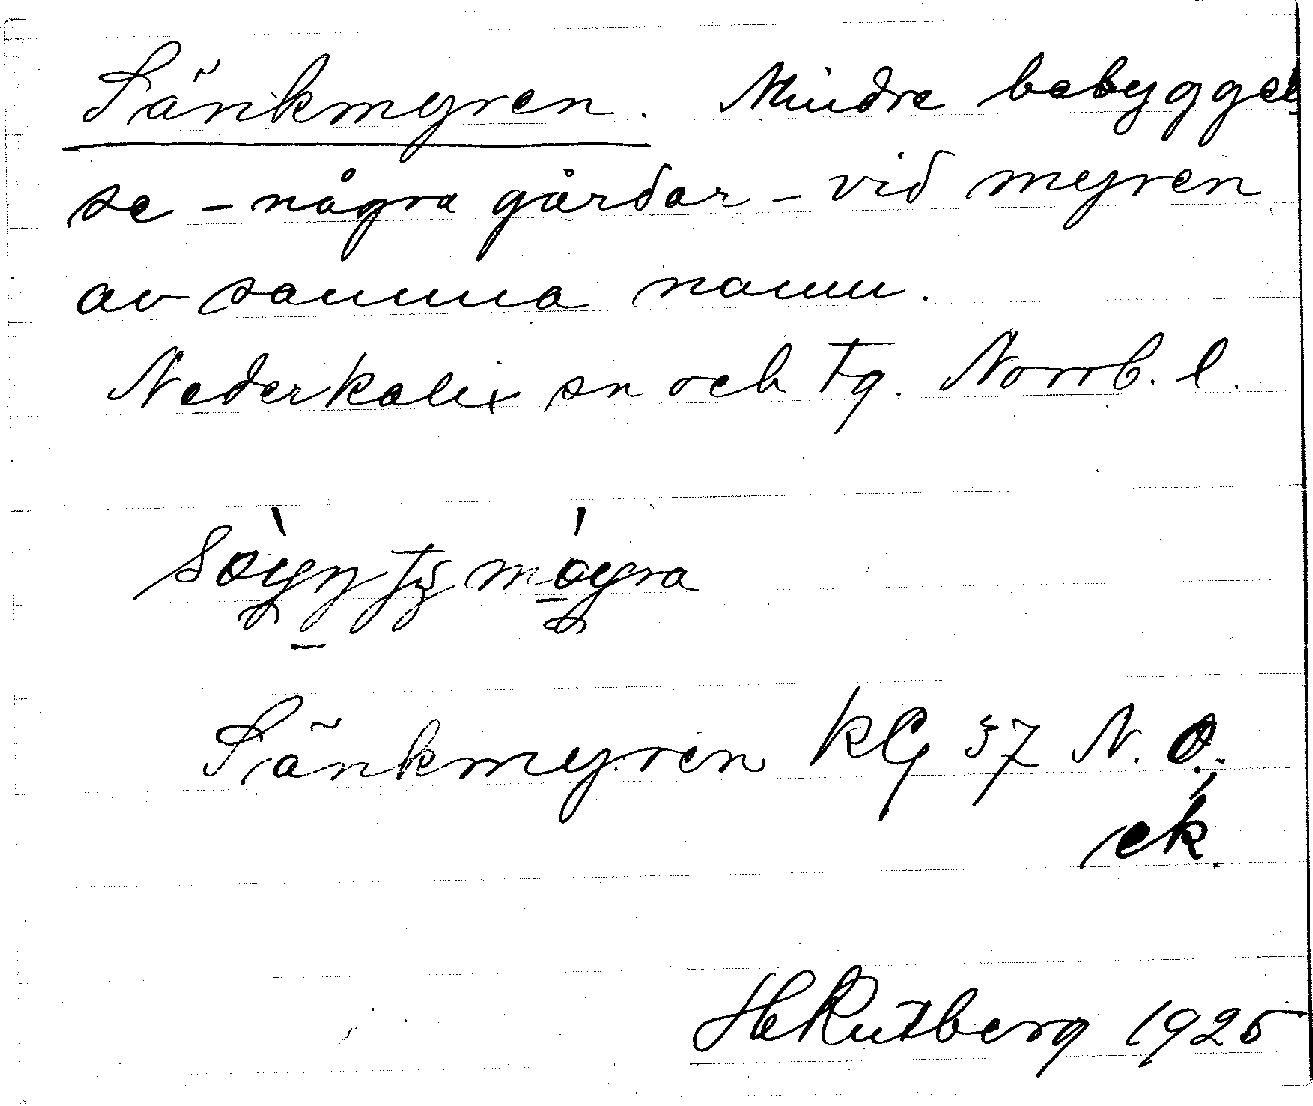 Sänkmyren. Mindre bebyggel
se - några gårdar - vid myren
av samma namn.
Nederkalix sn och tg. Norrb. l.
Sänkmyren KG 57 N.O.
ek.
H Rutberg 1925